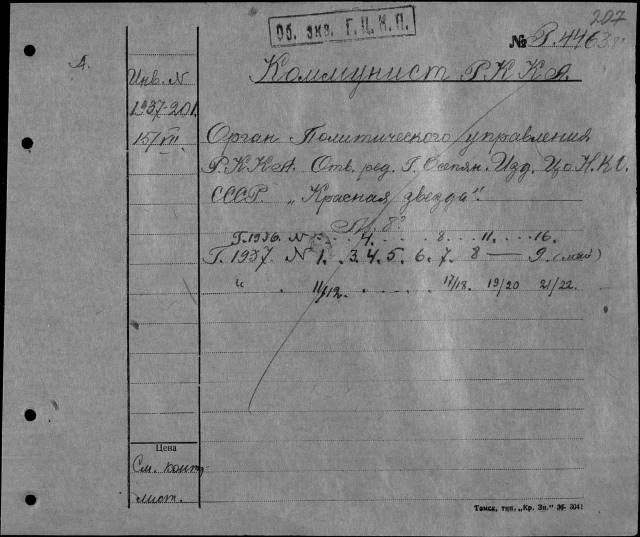 207
Об. экз. Г.Ц.К.П.
№ Р.4463
А.
Коммунист Р.К.К.А.
Инв. N
1937-201.
15/VII.
Орган Политического управления
Р.К.К.А. Отв. ред. Г. Осепян. Изд. Цо. Н.К.О.
СССР. „Красная звезда".
Г. 1936. N 4. 8. 11. 16.
Г. 1937. N 1. 3. 4. 5. 6. 7. 8 — 9. (май)
" 11/12. 17/18. 19/20 21/22.
Цена
См. конт.
лист.
Томск, тип. „Кр. Зн." Зб- 3041